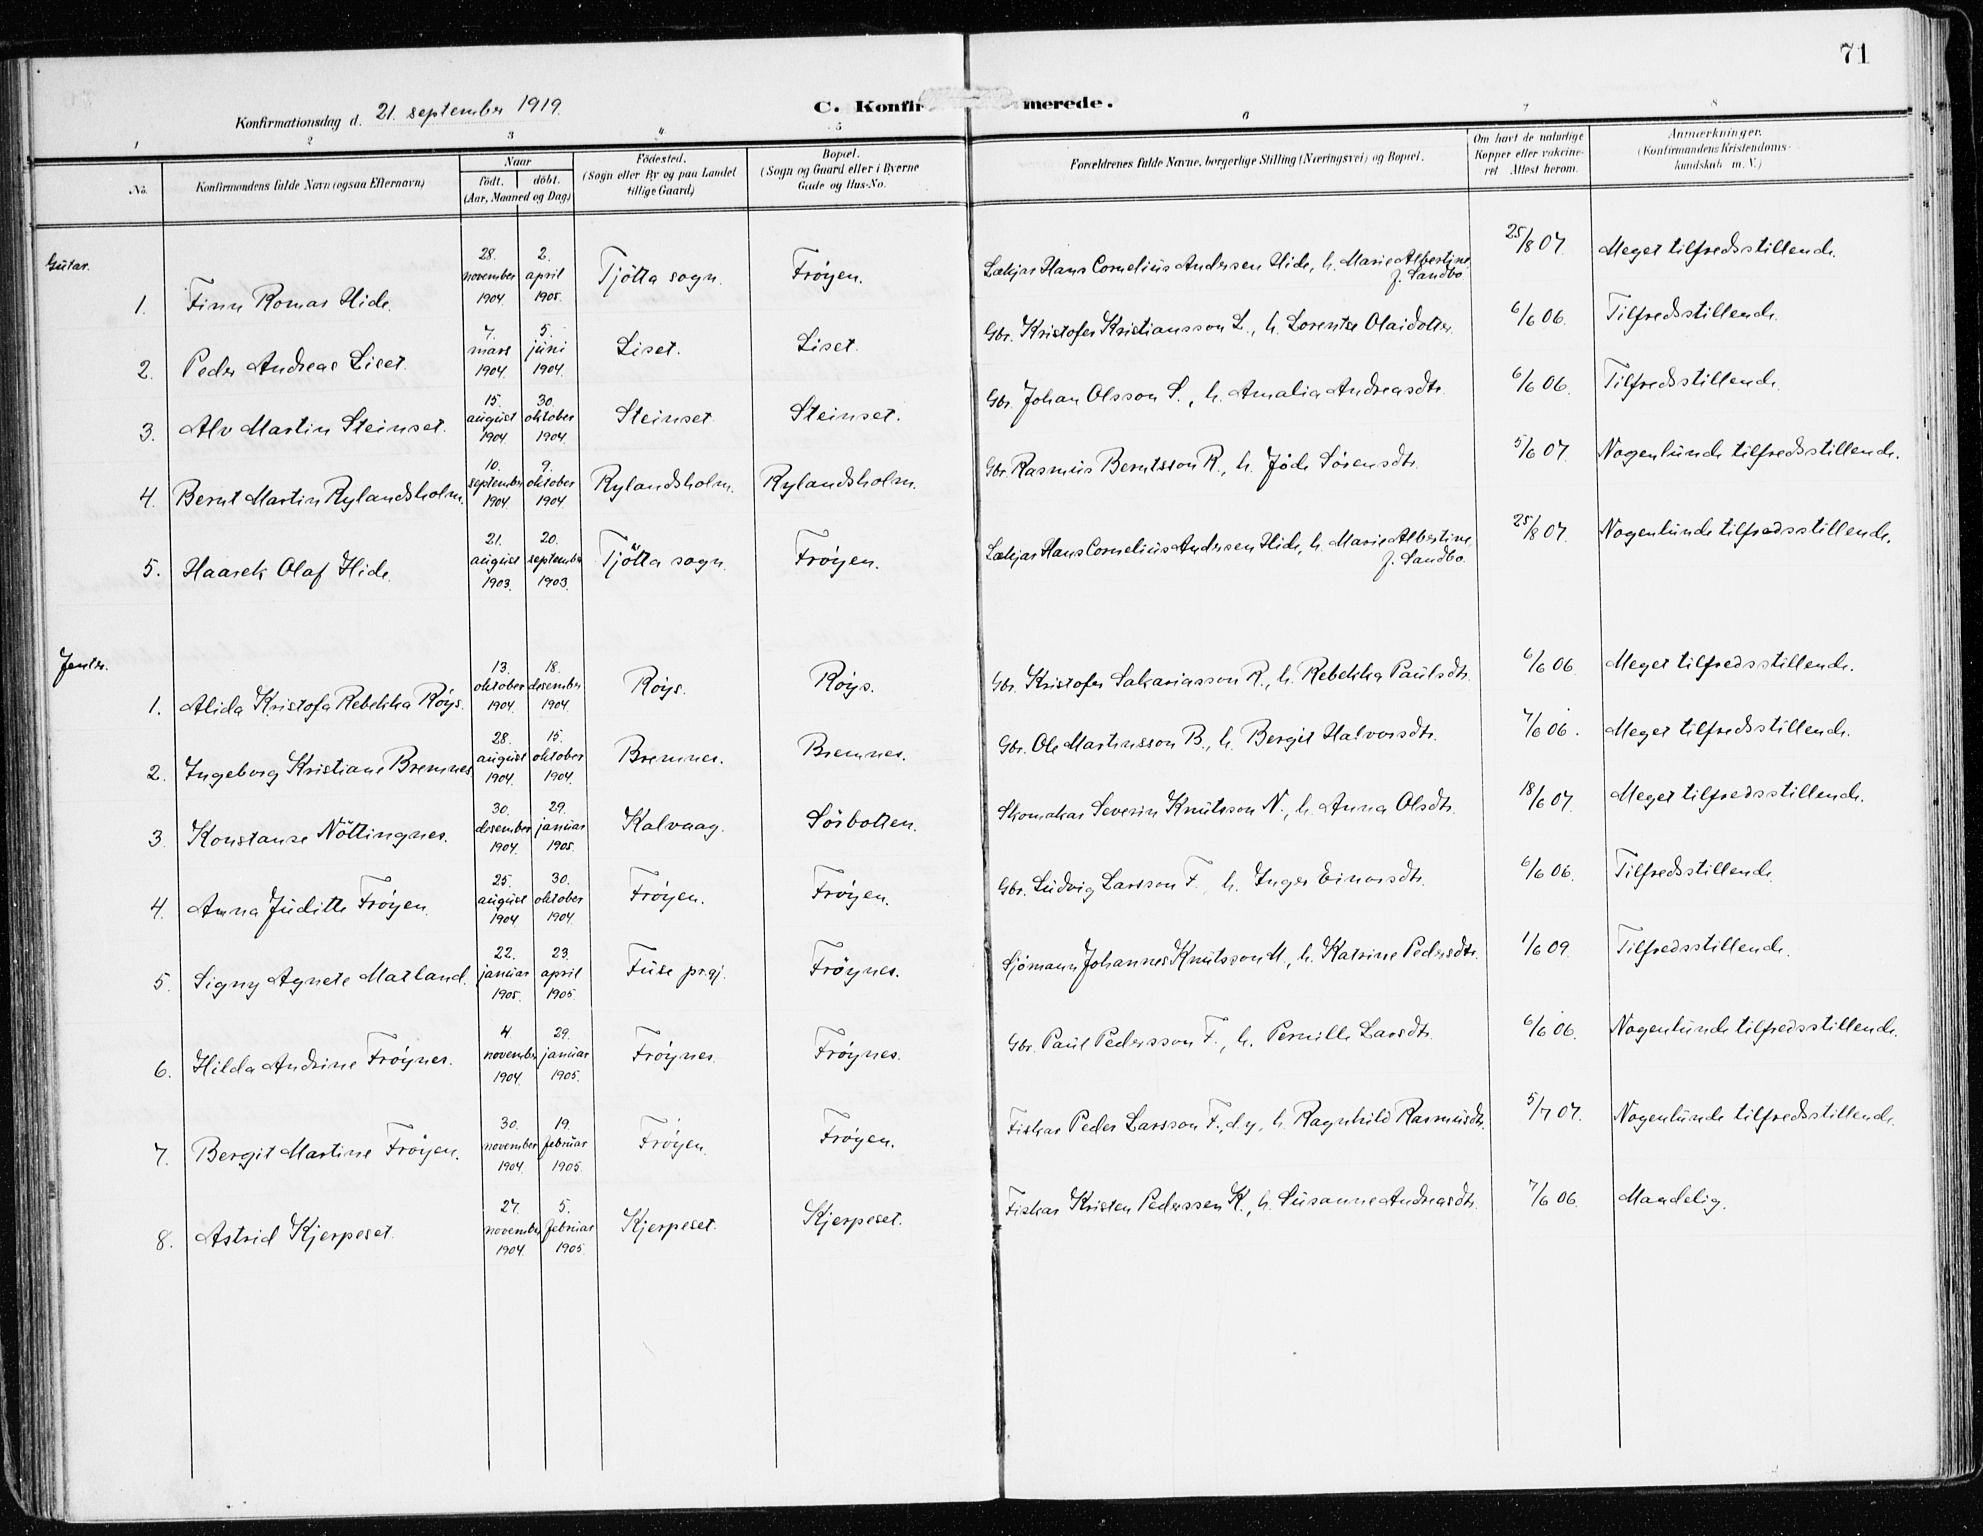 71
Konfirmationsdag d. 21. september 1919.
C. Konfirmerede.
1 2 3 4 5 6 7 8
No. Konfirmandens fulde Navn (ogsaa Efternavn) Naar Födt. döbt. (Aar, Maaned og Dag) Födested. (Sogn eller By og paa Landet tillige Gaard) Bopæl. (Sogn og Gaard eller i Byerne Gade og Hus-No. Forældrenes fulde Navne, borgerlige Stilling (Næringsvei) og Bopæl. Om havt de naturlige Kopper eller vakcineret. Attest herom. Anmærkninger. (Konfirmandens Kristendomskundskab m. V.)
Gutar.
1. Finn Romar Hide. 28. november 1904. 2. april 1905. Tjötta sogn. Fröyen. Lækjar Hans Cornelius Andersen Hide, h. Marie Albertine J. Sandbo. 25/8 07. Meget tilfredsstillende.
2. Peder Andreas Liset. 7. mars 1904. 5. juni 1904. Liset. Liset. Gbr. Kristofer Kristiansson L., h. Lorentse Olaidotter. 6/6 06. Tilfredsstillende.
3. Alv Martin Steinset. 15. august 1904. 30. oktober 1904. Steinset. Steinset. Gbr. Johan Olsson S., h. Amalia Andreasdtr. 6/6 06. Tilfredsstillende.
4. Bernt Martin Rylandsholm. 10. september 1904. 9. oktober 1904. Rylandsholm. Rylandsholm. Gbr. Rasmus Berntsson R., h. Jöde Sörensdtr. 5/6 07. Nogenlunde tilfredsstillende.
5. Haarek Olaf Hide. 21. august 1903. 20. september 1903. Tjötta sogn. Fröyen. Lækjar Hans Cornelius Andersen Hide, h. Marie Albertine J. Sandbo. 25/8 07. Nogenlunde tilfredsstillende.
Jentor.
1. Alida Kristofa Rebekka Röys. 13. oktober 1904. 18. desember 1904. Röys. Röys. Gbr. Kristofer Sakariasson R., h. Rebekka Paulsdtr. 6/6 06. Meget tilfredsstillende.
2. Ingeborg Kristiane Bremnes. 28. august 1904. 15. oktober 1904. Bremnes. Bremnes. Gbr. Ole Martinsson B., h. Bergit Halvorsdtr. 7/6 06. Meget tilfredsstillende.
3. Konstanse Nöttingnes. 30. desember 1904. 29. januar 1905. Kalvaag. Sörbotten. Skomakar Severin Knutsson N., h. Anna Olsdtr. 18/6 07. Meget tilfredsstillende.
4. Anna Juditte Fröyen. 25. august 1904 30. oktober 1904. Fröyen. Fröyen. Gbr. Ludvig Larsson F., h. Inger Einarsdtr. 6/6 06. Tilfredsstillende.
5. Signy Agnete Matland. 22. januar 1905. 23. april 1905. Fuse prgj. Fröynes. Sjömann Johannes Knutsson M., h. Katrine Pedersdtr. 1/6 09. Tilfredsstillende.
6. Hilda Andrine Fröynes. 4 november 1904. 29. januar 1905. Fröynes. Fröynes. Gbr. Paul Pedersson F., h. Pernille Larsdtr. 6/6 06. Nogenlunde tilfredsstillende.
7. Bergit Martine Fröyen. 30. november 1904. 19. februar 1905. Fröyen. Fröyen. Fiskar Peder Larsson F., d.y., h. Ragnhild Rasmusdtr. 5/7 07. Nogenlunde tilfredsstillende.
8. Astrid Kjerpeset. 27. november 1904. 5. februar 1905. Kjerpeset. Kjerpeset. Fiskar Kristen Pederssen K., h. Susanne Andreasdtr. 7/6 06. Maadelig.